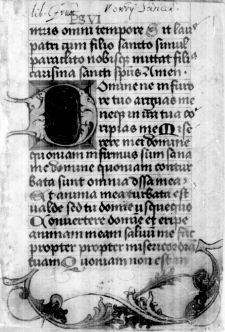 mus omni tempore Sit lau
patri cum filio sancto simul
paraclito nobisq mittat filī
carisma sancti spūs Amen
Domine ne in furo
re tuo arguas me
neqz in ira tua co
ripias me Mise
rere mei domine
quoniam infirmus sum sana
me domine quoniam contur
bata sunt omnia ossa mea
Et anima mea turbata est
valde sed tu domīe usquequo
Convertere domīe et eripe
animam meam salvū me fac
propter propter misericordiā
tuam Quoniam non est in